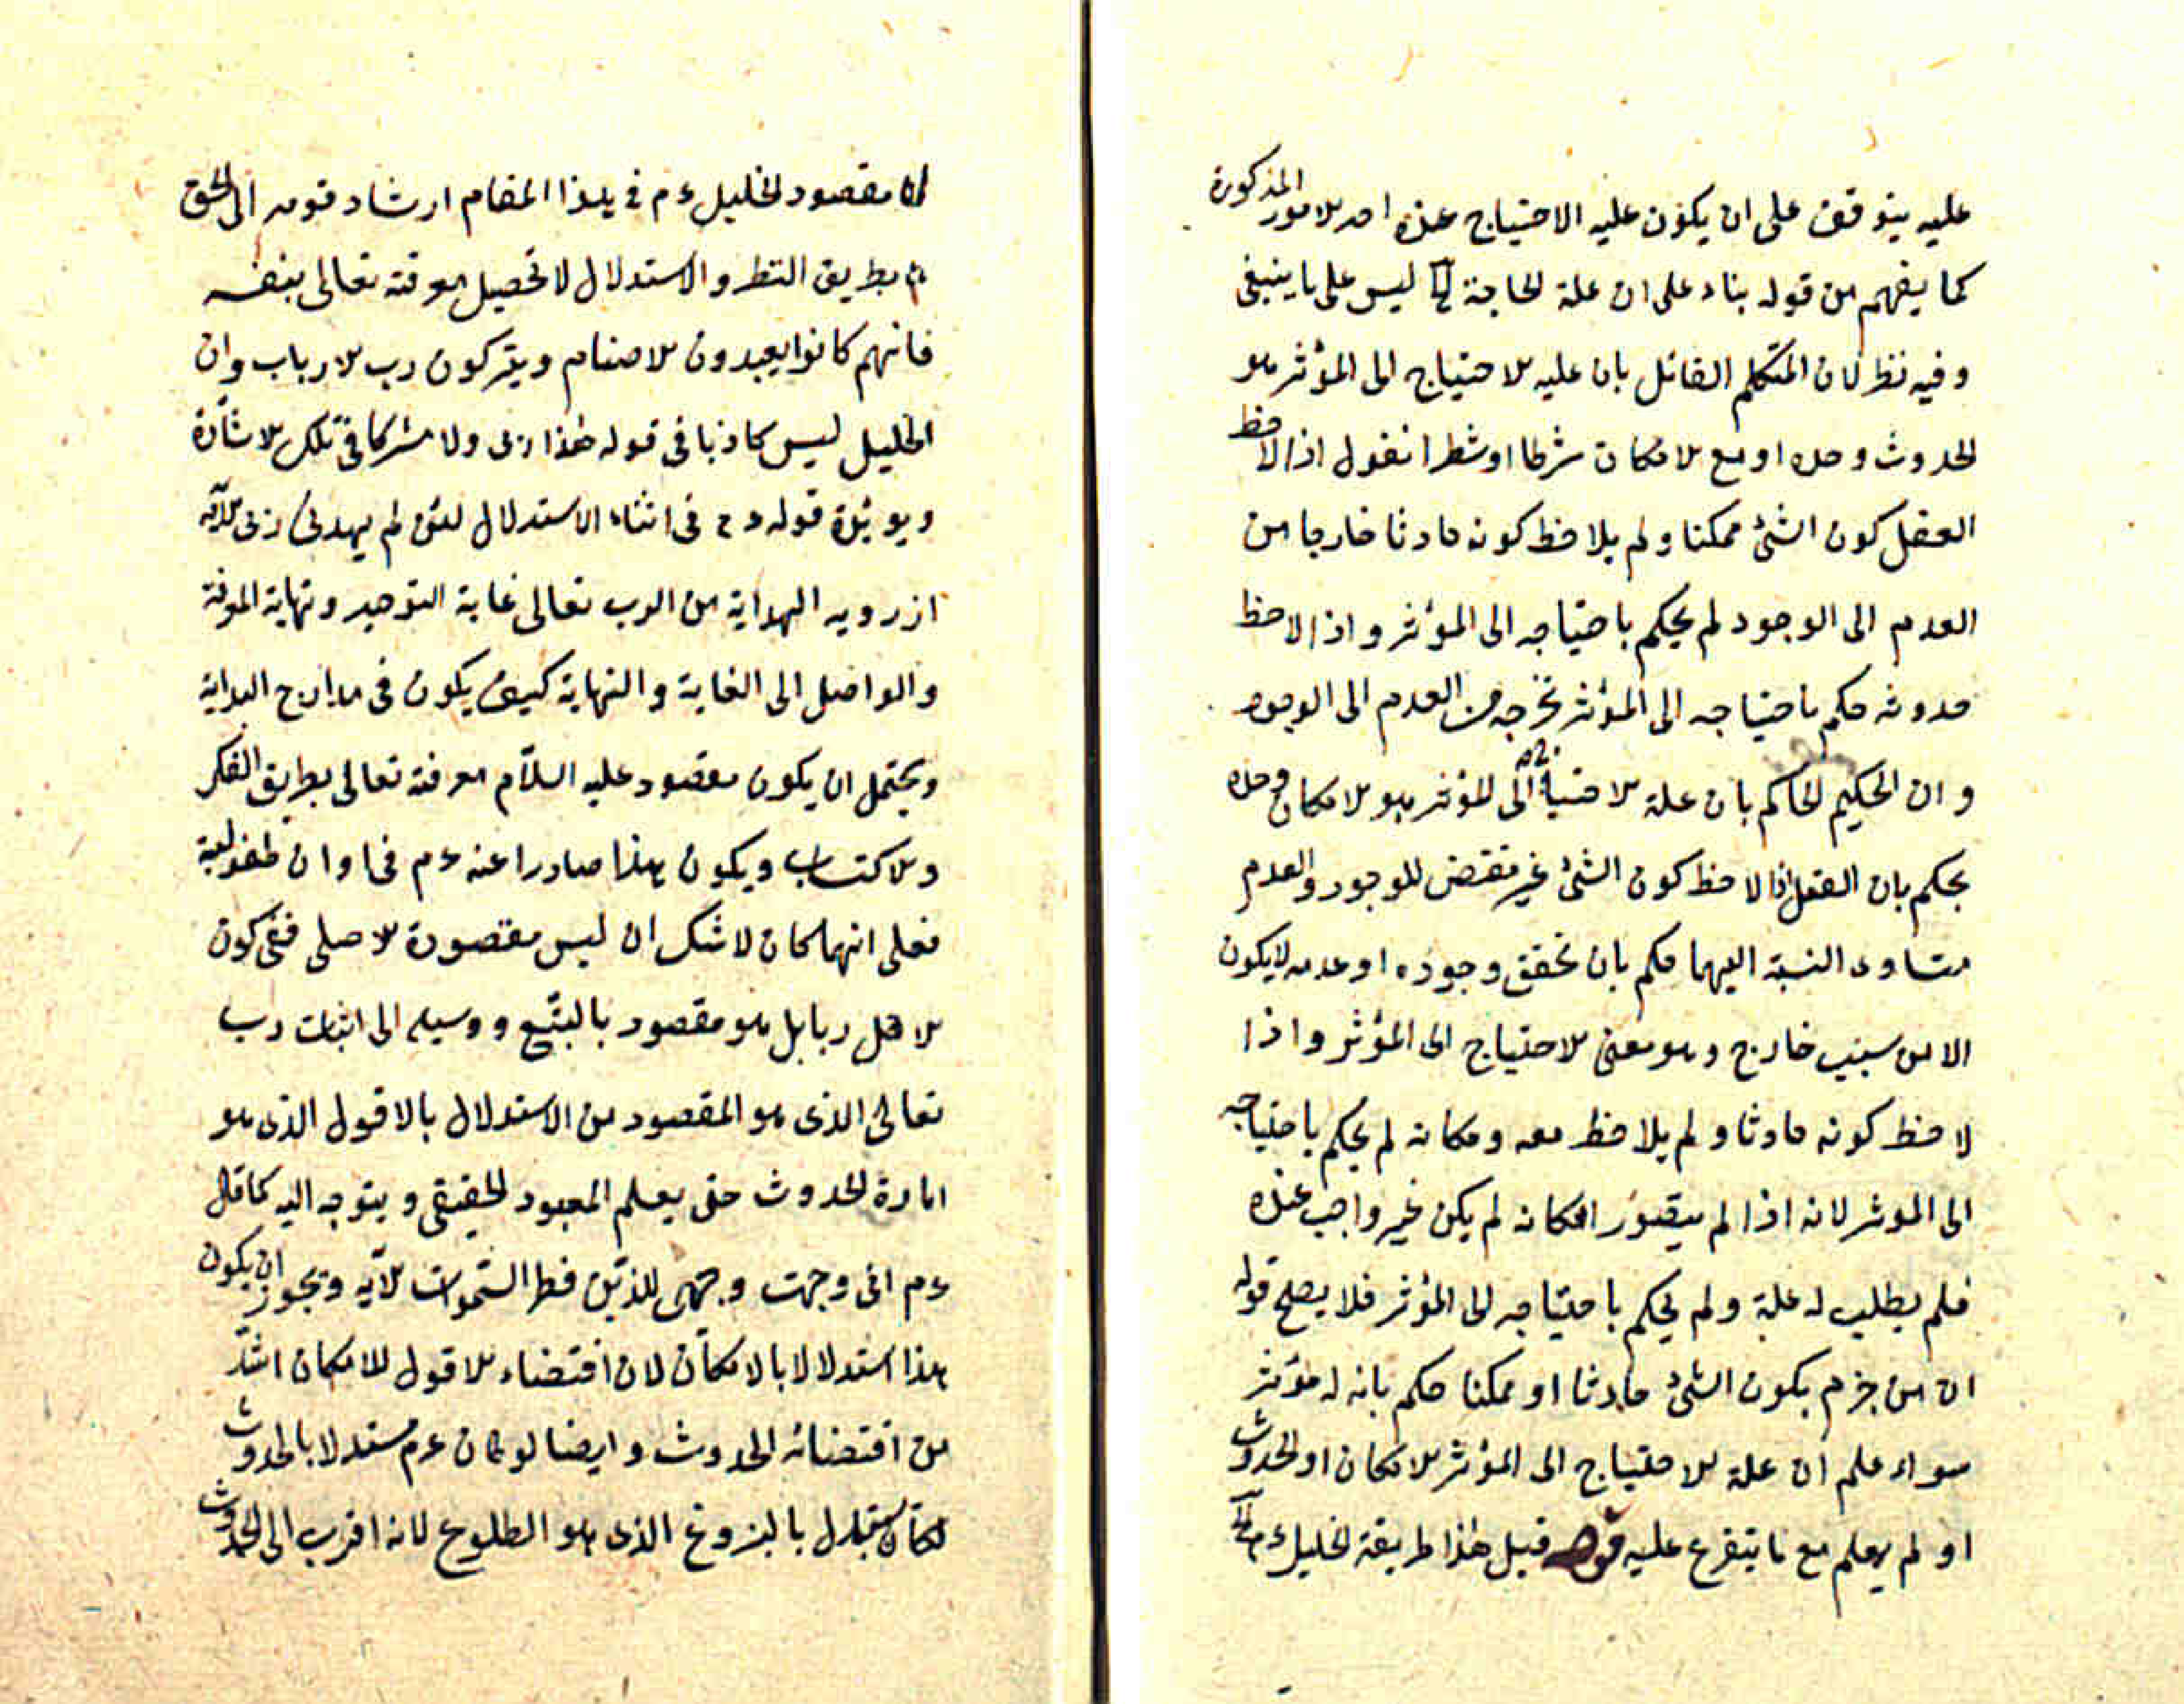 عليه يتوقف على ان يكون عليه الاحتياج عنده احد الامور المذكورة
كما يفهم من قوله بناء على ان علة الحاجة الخ ليس على ما ينبغى
وفيه نظر لان المتكلم القائل بان عليه الاحتياج الى المؤثر هو
الحدوث وحده او مع الامكان شرطا او شطرا نقول اذا لاحظ
العقل كون الشئ ممكنا ولم يلاحظ كونه حادثا خارجا من
العدم الى الوجود لم يحكم باحتياجه الى المؤثر واذا لاحظ
حدوثه حكم باحتياجه الى المؤثر تخرجه من العدم الى الوجود
وان الحكيم الحاكم بان علة الاحتياج الى المؤثر هو الامكان وحده
يحكم بان العقل اذا لاحظ كون الشئ غير مقتض للوجود والعدم
متساوى النسبة اليهما حكم بان تحقق وجوده او عدمه لا يكون
الا من سبب خارج وهو معنى الاحتياج الى المؤثر واذا
لاحظ كونه حادثا ولم يلاحظ معه ومكانه لم يحكم باحتياجه
الى الموثر لانه اذا لم يتصور امكانه لم يكن غير واجب عنده
فلم يطلب له علة ولم يحكم باحتياجه الى المؤثر فلا يصلح قوله
ان من جزم بكون الشئ حادثا او ممكنا حكم بانه له مؤثر
سواء علم ان علة الاحتياج الى المؤثر الامكان او الحدوث
او لم يعلم مع ما يتفرع عليه قوله قيل هذا طريقة الخليل ءم الخ
مقصود الخليل ءم فى هذا المقام ارشاد قومه الى الحق
بطريق النظر والاستدلال لا تحصيل معرفته تعالى بنفسه
فانهم كانوا يعبدون الاصنام ويتركون رب الارباب وان
الخليل ليس كاذبا فى قوله هذا ربى ولا مشركا فى تلك الاشارة
ويويده قوله فى اثناء الاستدلال لئن لم يهدنى ربى الآية
اذ رويه الهداية من الرب تعالى غاية التوحيد ونهاية المعرفة
والواصل الى الغاية والنهاية كيف يكون فى مدارج البداية
ويحتمل ان يكون مقصود عليه السلام معرفته تعالى بطريق الفكر
والاكتساب ويكون هذا صادرا عنه ءم فى اوان طفولية
فعلى ايهما كان لا شك ان ليس مقصوده الاصلى نفى كون
الافل ربا بل هو مقصود بالتبع ووسيله الى اثبات رب
تعالى الذى هو المقصود من الاستدلال بالافول الذى هو
امارة الحدوث حتى يعلم المعبود الحقيقى ويتوجه اليه كما قال
ءم انى وجهت وجهى للذى فطر السموات الآيه ويجوز ان يكون
هذا استدلالا بالامكان لان اقتضاء الافول للامكان اشد
من اقتضائه الحدوث وايضا لو كان ءم مستدلا بالحدوث
لكان استدل بالبزوغ الذى هو الطلوع لانه اقرب الى الحدوث